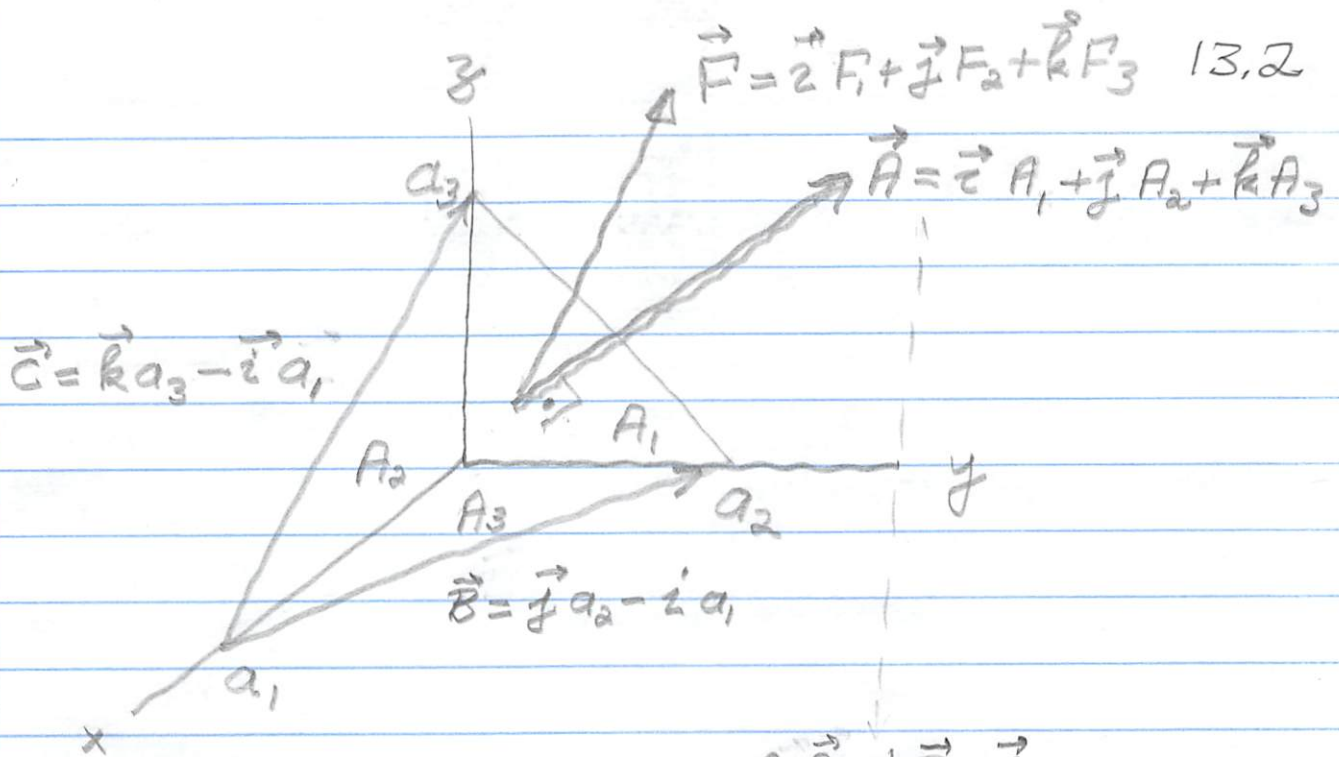 F⃗ = i⃗ F₁ + j⃗ F₂ + k⃗ F₃ 13.2
z
A⃗ = i⃗ A₁ + j⃗ A₂ + k⃗ A₃
a₃
C⃗ = k⃗ a₃ - i⃗ a₁
A₁
A₂
y
A₃
a₂
B⃗ = j⃗ a₂ - i a₁
a₁
x